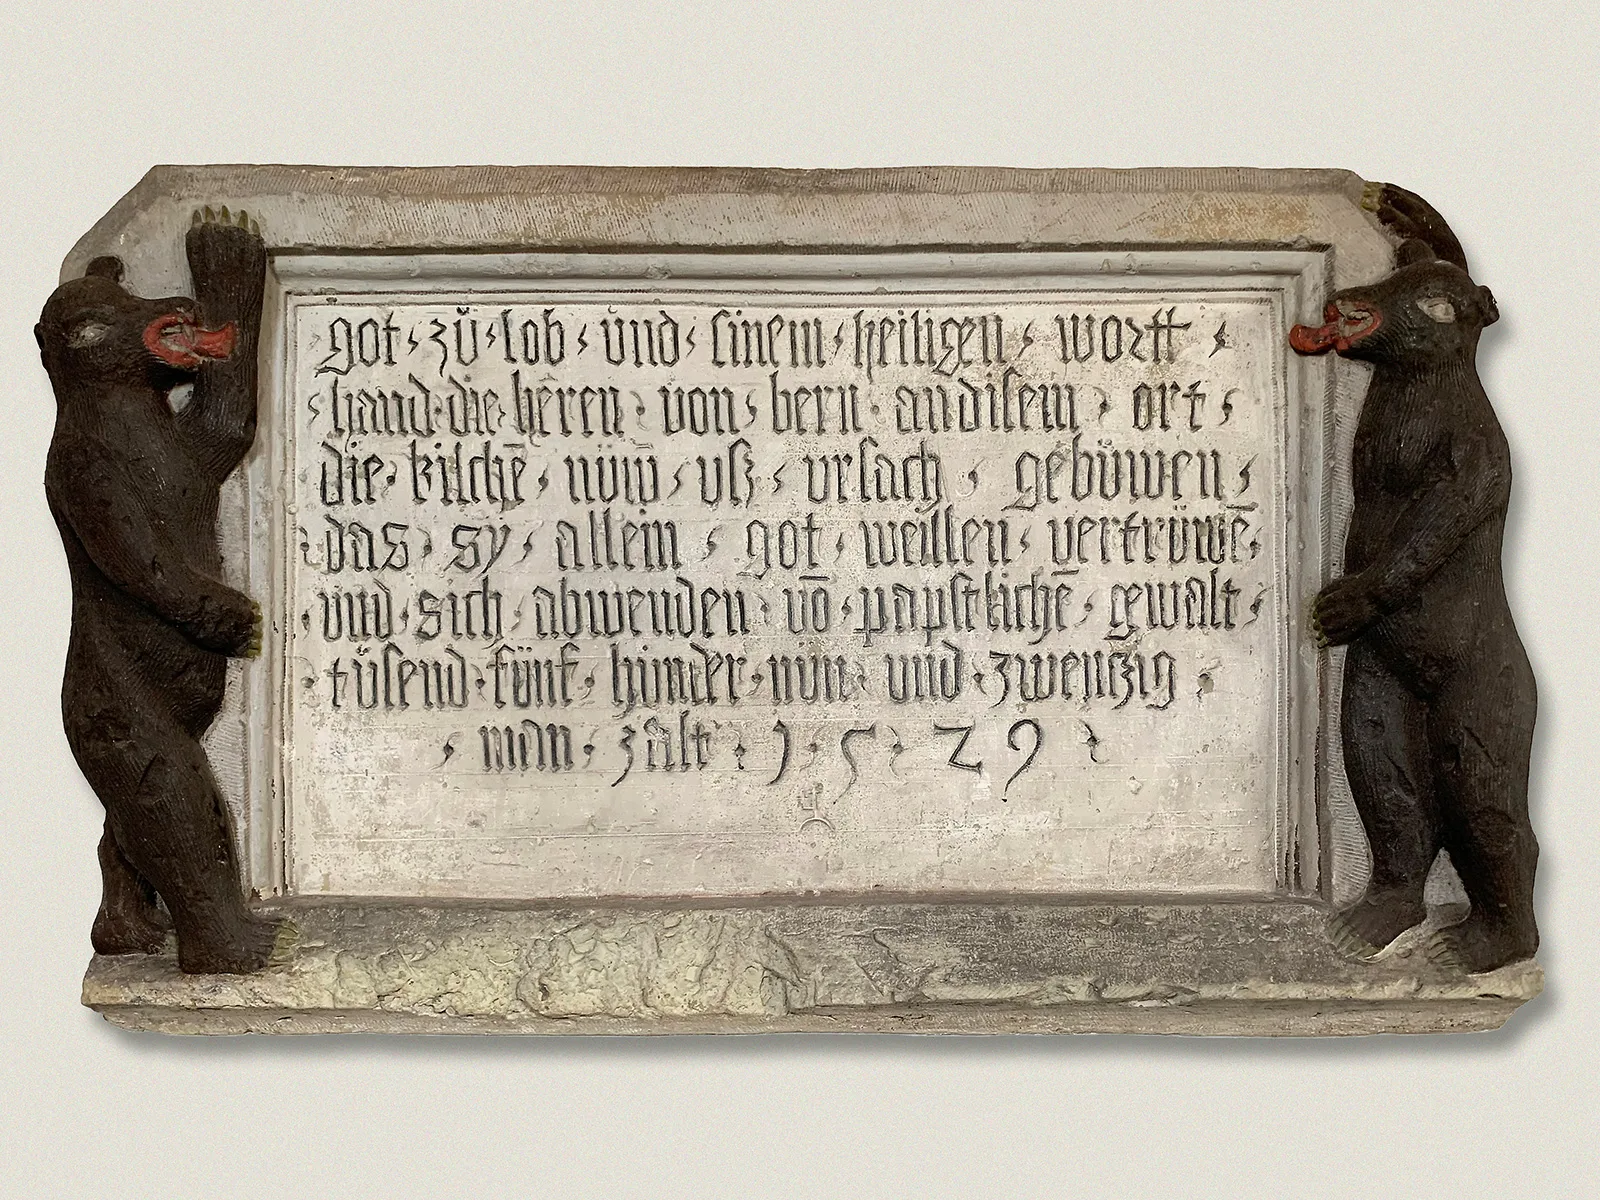 got · zů · lob · und · sinem · heiligen · wortt ·
· hand · die · hēren · von · bern · an disem · ort ·
die · kilchē · nüw̄ · uſz · vrsach · gebüwen ·
· das · sy · allein · got · wellen · vertrüwē ·
vnd · sich · abwenden · vō · papstlichē · gewalt ·
· tusend · fünf · hunder · nün · und · zwentzig ·
· man · zalt · 1 · 5 · 29 ·